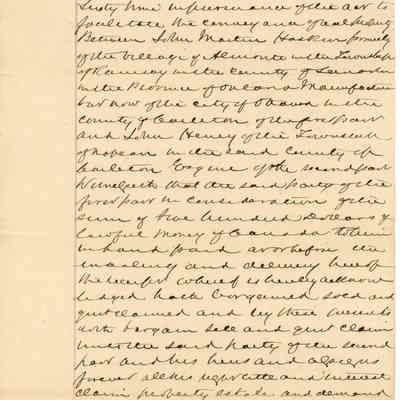 Sixty nine in pursuance of the act to
facilitate the conveyance of real property
Between John Martin Haskin formerly
of the village of Almonte in the Township
of Ramsay in the County of Lanark
in the Province of Ontario Manufacturer
but now of the city of Ottawa in the
County of Carleton of the first part
and John Heney of the Township
of Nepean in the said County of
Carleton Esquire of the second part
Witnesseth that the said party of the
first part in consideration of the
sum of five hundred Dollars of
lawful money of Canada to him
in hand paid at or before the
insealing and delivery hereof
the receipt whereof is hereby acknow
ledged hath bargained sold and
quit claimed and by these presents
doth bargain sell and quit claim
unto the said party of the second
part and his heirs and assigns
forever all his right title and interest
claim property estate and demand